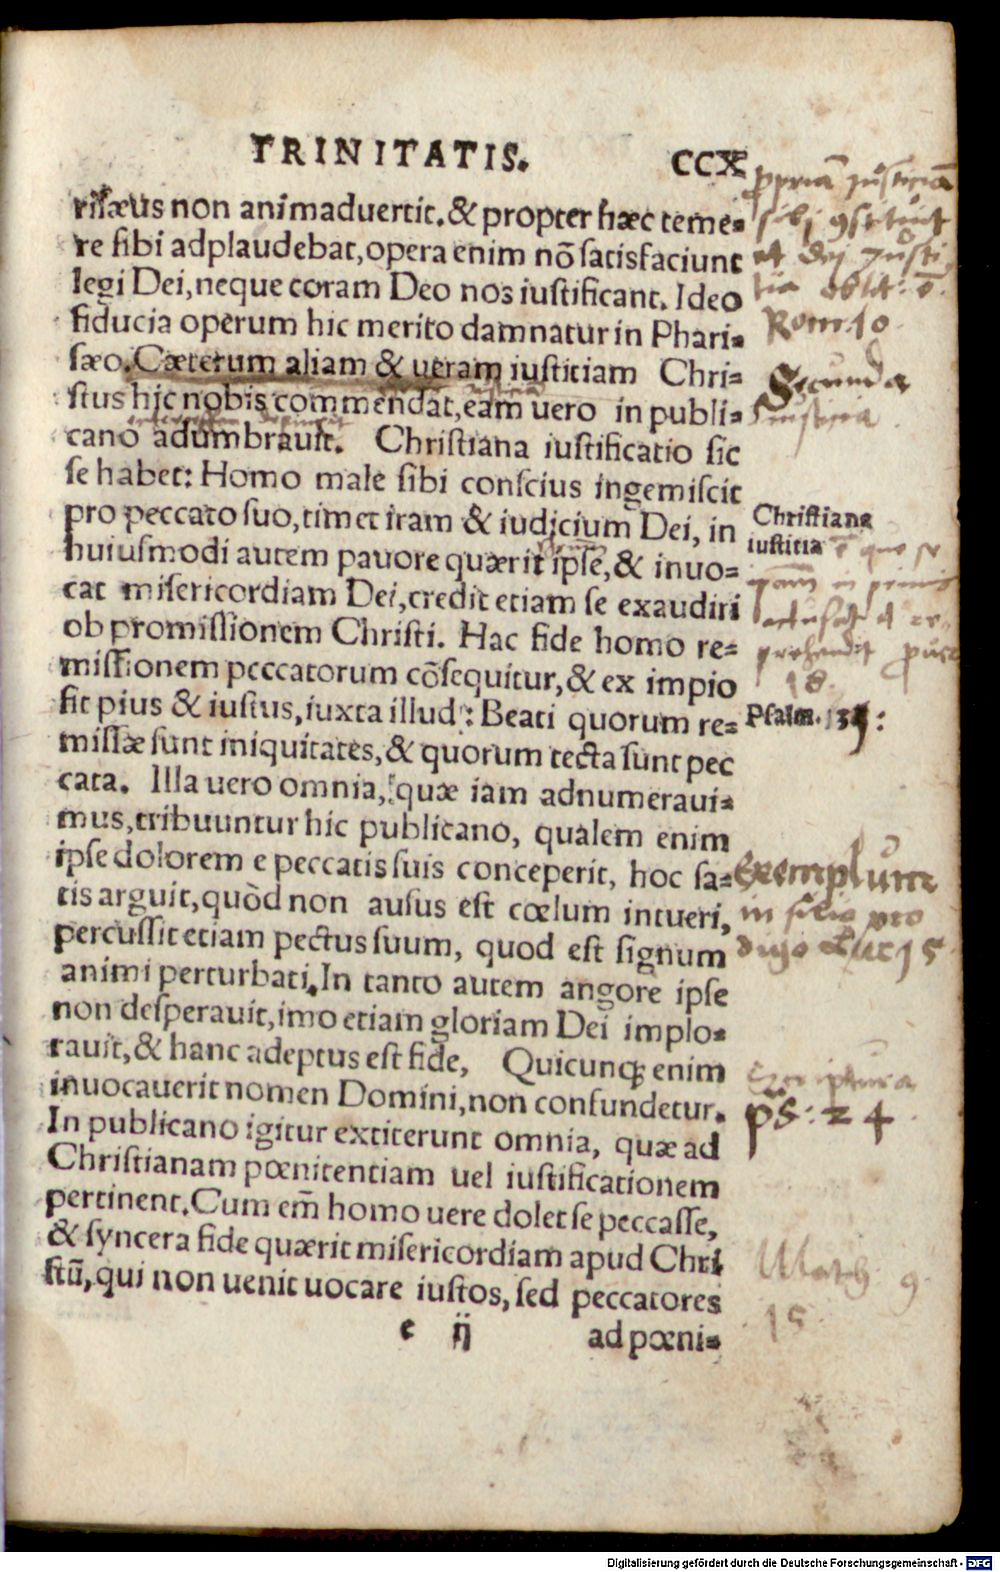 TRINITATIS. CCX
risæus non animaduertit. & propter hæc teme-
re sibi adplaudebat, opera enim nõ satisfaciunt
legi Dei, neque coram Deo nos iustificant. Ideo
fiducia operum hic merito damnatur in Phari-
sæo. Cæterum aliam & ueram iustitiam Chri-
stus hic nobis commendat, eam uero in publi-
cano adumbrauit. Christiana iustificatio sic
se habet: Homo male sibi conscius ingemiscit
pro peccato suo, timet iram & iudicium Dei, in
huiusmodi autem pauore quærit ipse, & inuo-
cat misericordiam Dei, credit etiam se exaudiri
ob promissionem Christi. Hac fide homo re-
missionem peccatorum cõsequitur, & ex impio
fit pius & iustus, iuxta illud: Beati quorum re-
missæ sunt iniquitates, & quorum tecta sunt pec
cata. Illa uero omnia, quæ iam adnumeraui-
mus, tribuuntur hic publicano, qualem enim
ipse dolorem e peccatis suis conceperit, hoc sa-
tis arguit, quòd non ausus est cœlum intueri,
percussit etiam pectus suum, quod est signum
animi perturbati. In tanto autem angore ipse
non desperauit, imo etiam gloriam Dei implo-
rauit, & hanc adeptus est fide, Quicunq; enim
inuocauerit nomen Domini, non confundetur.
In publicano igitur extiterunt omnia, quæ ad
Christianam pœnitentiam uel iustificationem
pertinent. Cum em̃ homo uere dolet se peccasse,
& syncera fide quærit misericordiam apud Chri
stũ, qui non uenit uocare iustos, sed peccatores
e ij ad pœni-
propriã Justiciã
sibj 9stituũt
et dej Justi
tia
Rom. 10
Secunda
iusticia
Christiana
iustitia ẽ que se
ipsam in primis
accusat et re-
prehendit prouer
18.
Psalm. 13
Exemplum
in filio pro
digo Luc 15
Scriptura
ps: 24
Math 9.
15
Digitalisierung gefördert durch die Deutsche Forschungsgemeinschaft - DFG